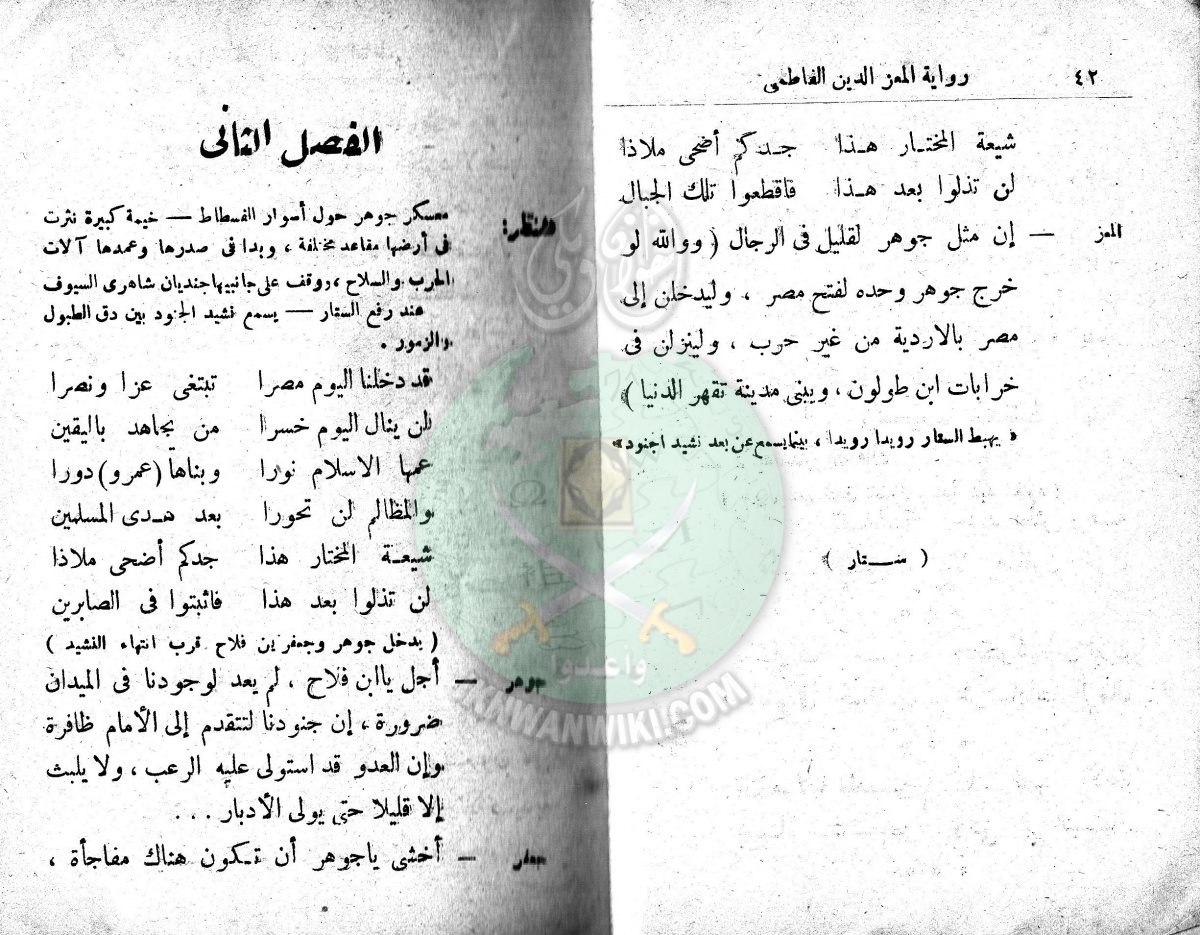 ٤٢ رواية المعز الدين الفاطمى
شيعة المختـار هـذا جـدكم أضحى ملاذا
لن تذلوا بعد هـذا فاقطعوا تلك الجبال
المعز — إن مثل جوهر لقليل فى الرجال (ووالله لو
خرج جوهر وحده لفتح مصر ، وليدخلن إلى
مصر بالاردية من غير حرب ، ولينزلن فى
خرابات ابن طولون ، ويبنى مدينة تقهر الدنيا )
« يهبط الستار رويدا رويدا ، بينما يسمع عن بعد نشيد اجنود»
( ستـــار )
الفصل الثانى
المنظر: معسكر جوهر حول أسوار الفسطاط — خيمة كبيرة نثرت
فى أرضها مقاعد مختلفة ، وبدا فى صدرها وعمدها آلات
الحرب والسلاح ، ووقف على جانبيها جنديان شاهرى السيوف
عند رفع الستار — يسمع نشيد الجنود بين دق الطبول
والزمور .
قد دخلنا اليوم مصرا نبتغى عزا ونصرا
لن ينال اليوم خسرا من يجاهد باليقين
عمها الاسلام نورا وبناها (عمرو) دورا
والمظالم لن تحورا بعد هـدى المسلمين
شيعـة المختار هذا جدكم أضحى ملاذا
لن تذلوا بعد هذا فاثبتوا فى الصابرين
( يدخل جوهر وجعفر بن فلاح قرب انتهاء النشيد )
جوهر — أجل ياابن فلاح ، لم يعد لوجودنا فى الميدان
ضرورة ، إن جنودنا لتتقدم إلى الأمام ظافرة
وإن العدو قد استولى عليه الرعب ، ولا يلبث
إلا قليلا حتى يولى الأدبار ...
جعفر — أخشى ياجوهر أن تـكون هناك مفاجأة ،
الإخوان ويكي
واعدوا
IKHWANWIKI.COM